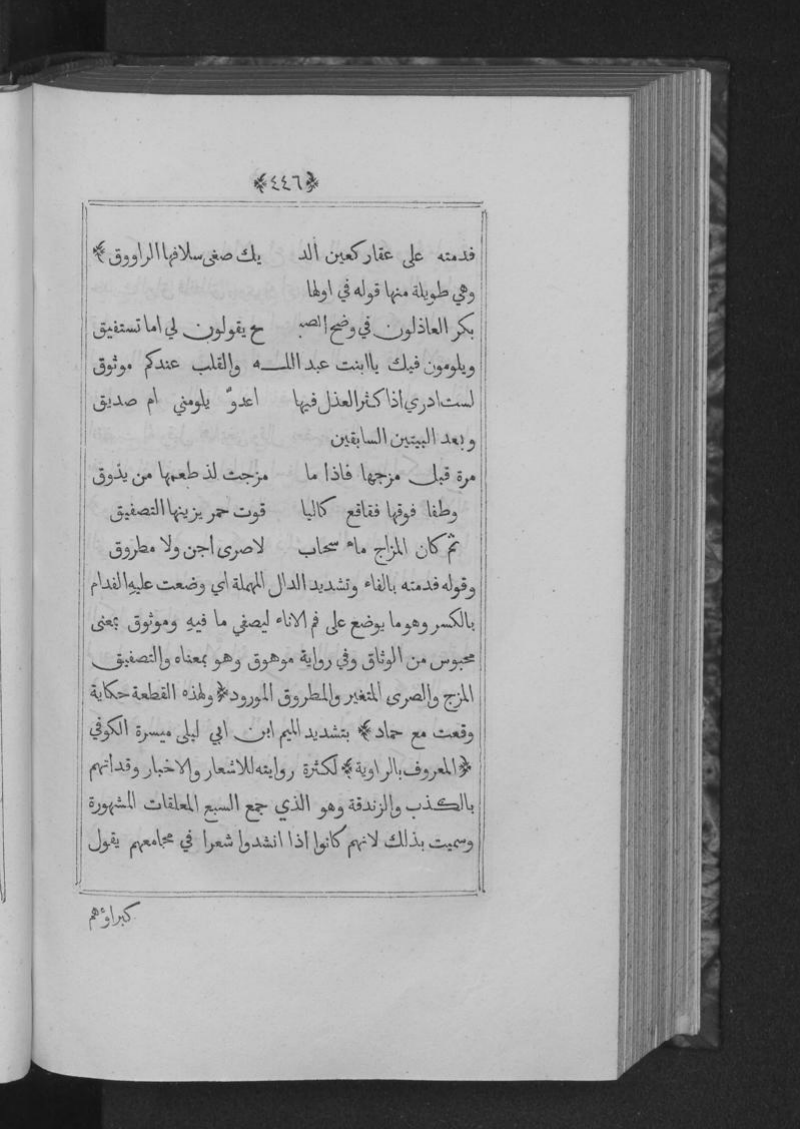 ﴿٤٤٦﴾
فدمته على عقار كعين الد يك صفى سلافها الراووق ﴾
وهي طويلة منها قوله في اولها
بكر العاذلون في وضح الصبـ ح يقولون لي اما تستفيق
ويلومون فيك ياابنت عبد اللـــه والقلب عندكم موثوق
لست ادري اذا كثر العذل فيها اعدوٌ يلومني ام صديق
وبعد البيتين السابقين
مرة قبل مزجها فاذا ما مزجت لذ طعمها من يذوق
وطفا فوقها فقاقع كاليا قوت حمر يزينها التصفيق
ثم كان المزاج ماء سحاب لا صرى اجن ولا مطروق
وقوله فدمته بالفاء وتشديد الدال المهملة اي وضعت عليهِ الفدام
بالكسر وهو ما يوضع على فم الاناء ليصفي ما فيهِ وموثوق بمعنى
محبوس من الوثاق وفي رواية موهوق وهو بمعناه والتصفيق
المزج والصرى المتغير والمطروق المورود ﴿ ولهذه القطعة حكاية
وقعت مع حماد ﴾ بتشديد الميم ابن ابي ليلى ميسرة الكوفي
﴿ المعروف بالراوية ﴾ لكثرة روايته للاشعار والاخبار وقد اتهم
بالكذب والزندقة وهو الذي جمع السبع المعلقات المشهورة
وسميت بذلك لانهم كانوا اذا انشدوا شعرا في مجامعهم يقول
كبراؤهم